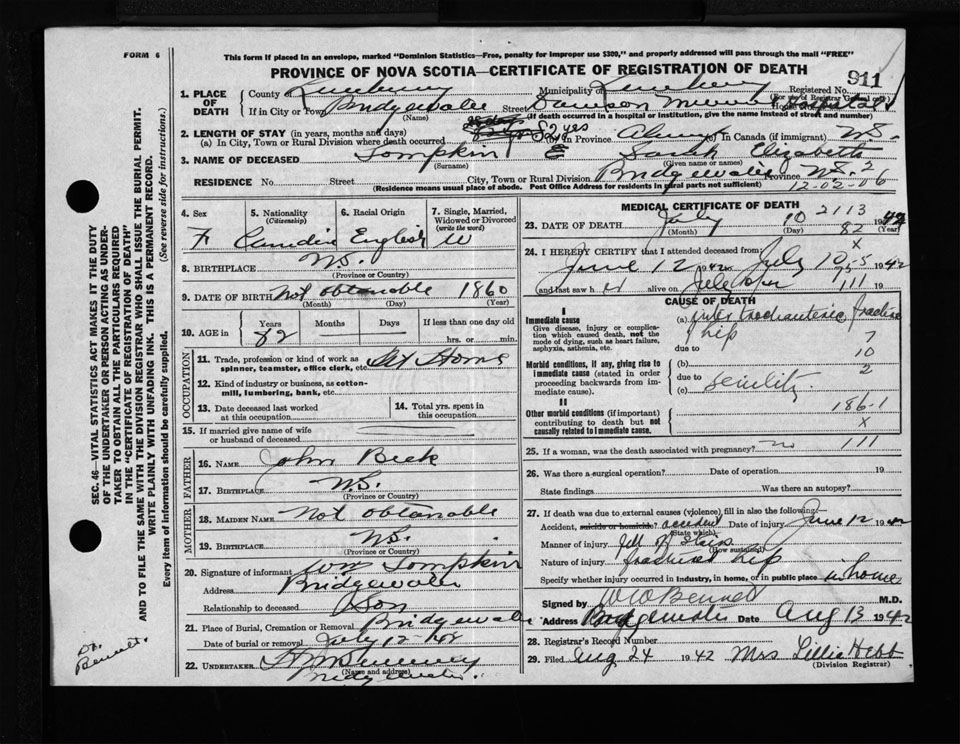 FORM 6
This form if placed in an envelope, marked "Dominion Statistics—Free, penalty for improper use $300," and properly addressed will pass through the mail "FREE"
PROVINCE OF NOVA SCOTIA—CERTIFICATE OF REGISTRATION OF DEATH
911
1. PLACE OF DEATH County Lunenburg Municipality of Lunenburg Registered No.
(For use of Registrar General only)
If in City or Town Bridgewater Street Dawson Memorial Hospital
(Name) (If death occurred in a hospital or institution, give the name instead of street and number)
2. LENGTH OF STAY (in years, months and days)
(a) In City, Town or Rural Division where death occurred 82 yrs (b) in Province Always (c) In Canada (if immigrant) N.S.
3. NAME OF DECEASED Tompkin Sarah Elizabeth
(Surname) (Given name or names)
RESIDENCE No. Street City, Town or Rural Division Bridgewater Province N.S. 2
(Residence means usual place of abode. Post Office Address for residents in rural parts not sufficient) 12-02-06
4. Sex F
5. Nationality (Citizenship) Canadian
6. Racial Origin English
7. Single, Married, Widowed or Divorced (write the word) W
8. BIRTHPLACE N.S.
(Province or Country)
9. DATE OF BIRTH Not obtanable 1860
(Month) (Day) (Year)
10. AGE in Years Months Days If less than one day old
82 hrs. or min.
OCCUPATION
11. Trade, profession or kind of work as spinner, teamster, office clerk, etc. At Home
12. Kind of industry or business, as cotton-mill, lumbering, bank, etc.
13. Date deceased last worked at this occupation
14. Total yrs. spent in this occupation
15. If married give name of wife or husband of deceased
FATHER
16. NAME John Beck
17. BIRTHPLACE N.S.
(Province or Country)
MOTHER
18. MAIDEN NAME Not obtanable
19. BIRTHPLACE N.S.
(Province or Country)
20. Signature of informant Wm Tompkin
Address Bridgewater
Relationship to deceased Son
21. Place of Burial, Cremation or Removal Bridgewater
Date of burial or removal July 12
22. UNDERTAKER
(Name and address)
Bridgewater.
MEDICAL CERTIFICATE OF DEATH
23. DATE OF DEATH July 10 2113 1942
(Month) (Day) 82 (Year)
24. I HEREBY CERTIFY that I attended deceased from: X
June 12 1942 July 10 1942
and last saw h alive on 111 19
CAUSE OF DEATH
I
Immediate cause
Give disease, injury or complication which caused death, not the mode of dying, such as heart failure, asphyxia, asthenia, etc.
(a) Inter trochanteric fracture
hip 7
due to 10
Morbid conditions, if any, giving rise to immediate cause (stated in order proceeding backwards from immediate cause).
(b) 2
due to
(c) Senility
II
186-1
Other morbid conditions (if important) contributing to death but not causally related to immediate cause. X
25. If a woman, was the death associated with pregnancy? no 111
26. Was there a surgical operation? Date of operation 19
State findings Was there an autopsy?
27. If death was due to external causes (violence) fill in also the following:—
Accident, suicide or homicide? accident Date of injury June 12 1942
(State which)
Manner of injury fell of stairs
(How sustained)
Nature of injury fractured hip
Specify whether injury occurred in industry, in home, or in public place in home
Signed by W A Bennett M.D.
Address Bridgewater Date Aug 13 1942
28. Registrar's Record Number
29. Filed Aug 24 1942 Mrs Lillie Hebb
(Division Registrar)
SEC. 46—VITAL STATISTICS ACT MAKES IT THE DUTY
OF THE UNDERTAKER OR PERSON ACTING AS UNDER-
TAKER TO OBTAIN ALL THE PARTICULARS REQUIRED
IN THE "CERTIFICATE OF REGISTRATION OF DEATH"
AND TO FILE THE SAME WITH THE DIVISION REGISTRAR WHO SHALL ISSUE THE BURIAL PERMIT.
WRITE PLAINLY WITH UNFADING INK. THIS IS A PERMANENT RECORD.
Every item of information should be carefully supplied. (See reverse side for instructions.)
Dr.
Bennett.